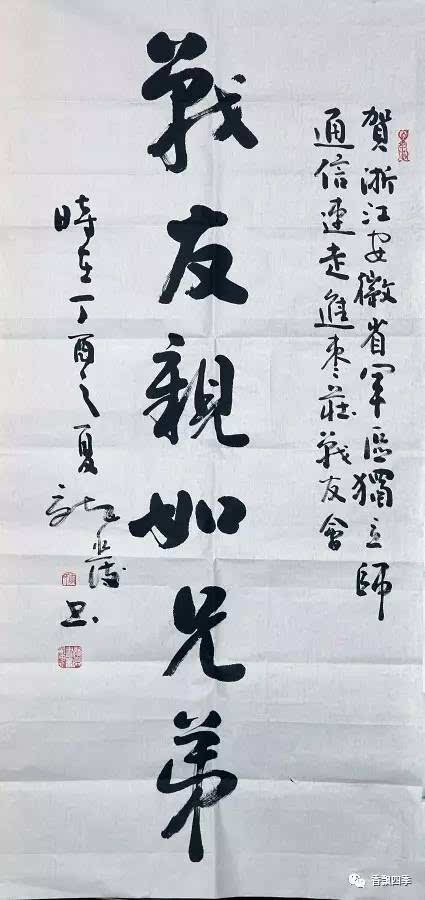 賀浙江安徽省軍區獨立師
通信連走進棗莊戰友會
戰友親如兄弟
時在丁酉之夏
書
香飘四季